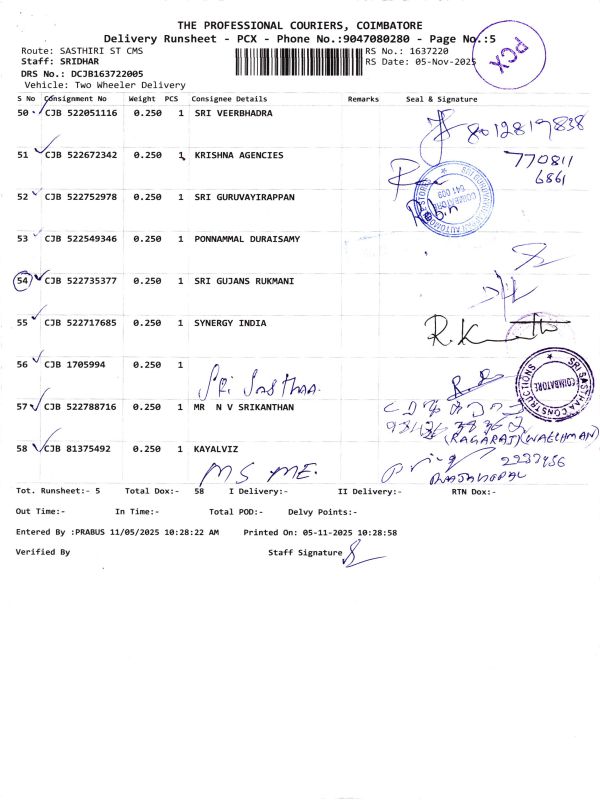 THE PROFESSIONAL COURIERS, COIMBATORE
Delivery Runsheet - PCX - Phone No.:9047080280 - Page No.:5
PCX
Route: SASTHIRI ST CMS RS No.: 1637220
Staff: SRIDHAR RS Date: 05-Nov-2025
DRS No.: DCJB163722005
Vehicle: Two Wheeler Delivery
S No Consignment No Weight PCS Consignee Details Remarks Seal & Signature
50 CJB 522051116 0.250 1 SRI VEERBHADRA 8012819838
51 CJB 522672342 0.250 1 KRISHNA AGENCIES 770811
6861
52 CJB 522752978 0.250 1 SRI GURUVAYIRAPPAN Robin
COIMBATORE
641 009
53 CJB 522549346 0.250 1 PONNAMMAL DURAISAMY
54 CJB 522735377 0.250 1 SRI GUJANS RUKMANI
55 CJB 522717685 0.250 1 SYNERGY INDIA
56 CJB 1705994 0.250 1
Sri Sasthaa.
SRI SASTHAA CONSTRUCTIONS
COIMBATORE
57 CJB 522788716 0.250 1 MR N V SRIKANTHAN
(RAGARAJ)(WAECHMAN)
58 CJB 81375492 0.250 1 KAYALVIZ
MS ME. 2237456
RAJAGOPAL
Tot. Runsheet:- 5 Total Dox:- 58 I Delivery:- II Delivery:- RTN Dox:-
Out Time:- In Time:- Total POD:- Delvy Points:-
Entered By :PRABUS 11/05/2025 10:28:22 AM Printed On: 05-11-2025 10:28:58
Verified By Staff Signature